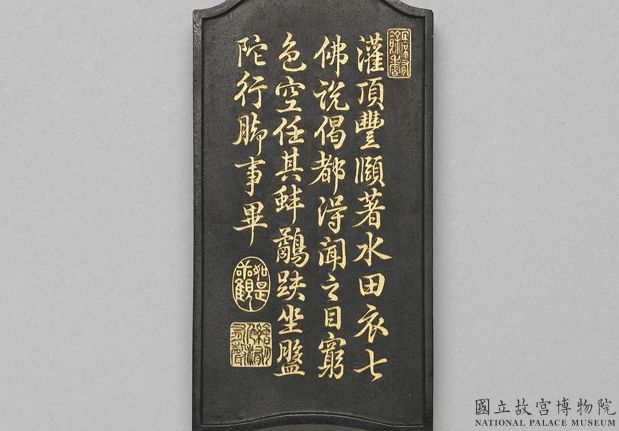 灌頂豐頤著水田衣七
佛說偈都得聞之目窮
色空任其蚌鷸趺坐盤
陀行脚事畢
國立故宮博物院
NATIONAL PALACE MUSEUM